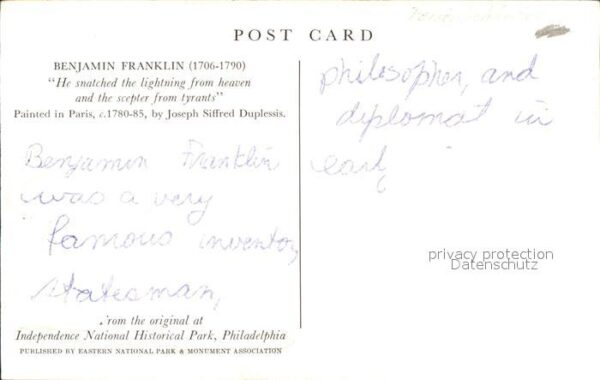 POST CARD
BENJAMIN FRANKLIN (1706-1790)
"He snatched the lightning from heaven
and the scepter from tyrants"
Painted in Paris, c.1780-85, by Joseph Siffred Duplessis.
Benjamin Franklin
was a very
famous inventor,
statesman,
rom the original at
Independence National Historical Park, Philadelphia
PUBLISHED BY EASTERN NATIONAL PARK & MONUMENT ASSOCIATION
philosopher, and
diplomat in
early
privacy protection
Datenschutz